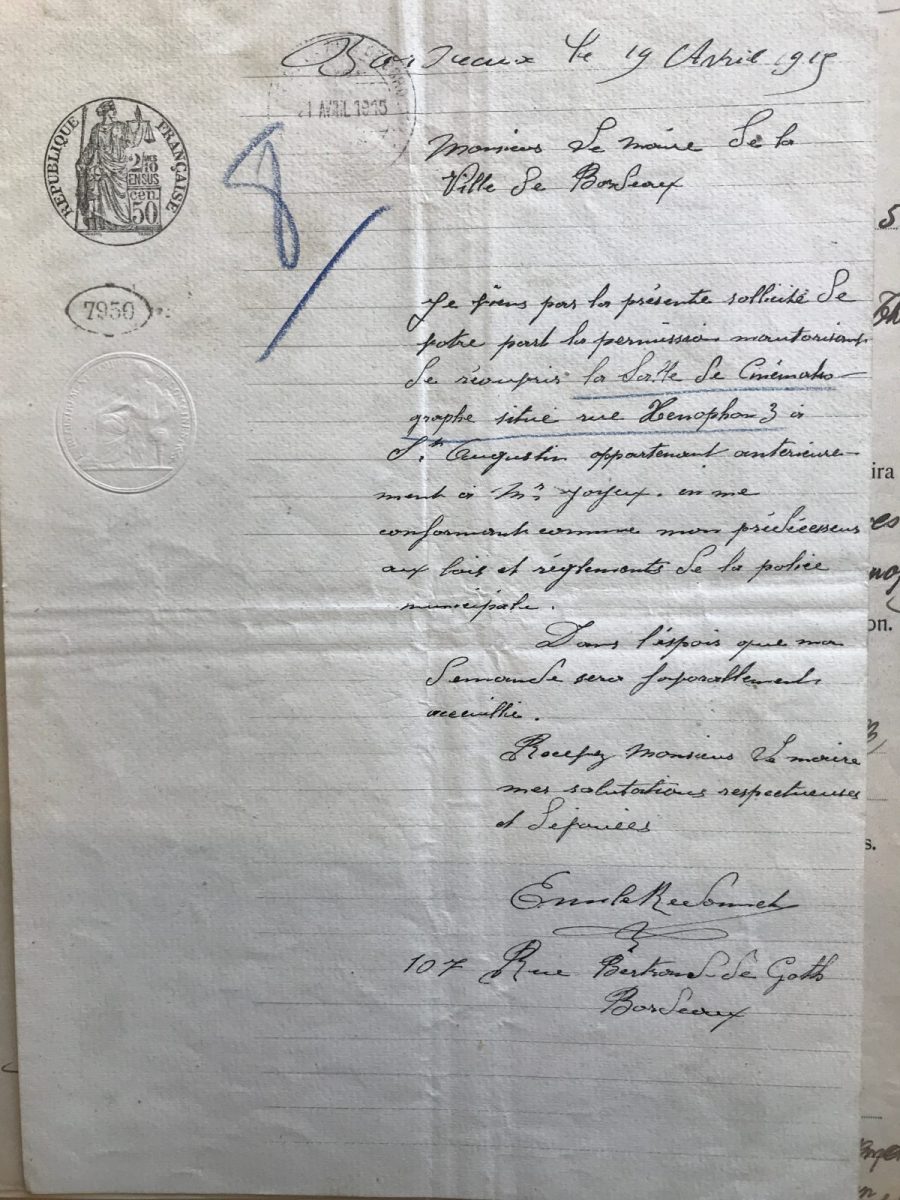 Bordeaux le 19 Avril 1915
21 AVRIL 1915
RÉPUBLIQUE FRANÇAISE
2/10 EN SUS
cen. 50
8
7950
Monsieur Le Maire de la
Ville de Bordeaux
Je viens par la présente sollicité de
votre part la permission m'autorisant
de réouvrir la Salle de Cinémato-
graphe situé rue Xénophon 3 à
St. Augustin appartenant antérieure-
ment à Mr. Joyeux. en me
conformant comme mon prédécesseur
aux lois et réglements de la police
municipale.
Dans l'éspoir que ma
demande sera favorablement
accueillie.
Recevez Monsieur Le Maire
mes salutations respectueuses
et dévouées
Emile
107 Rue Bertrand de Goth
Bordeaux
5
ira
on.
s.